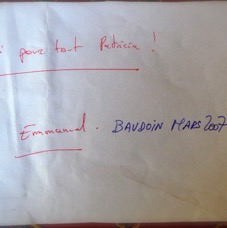 pour tout Patricia !
Emmanuel. BAUDOIN MARS 2007